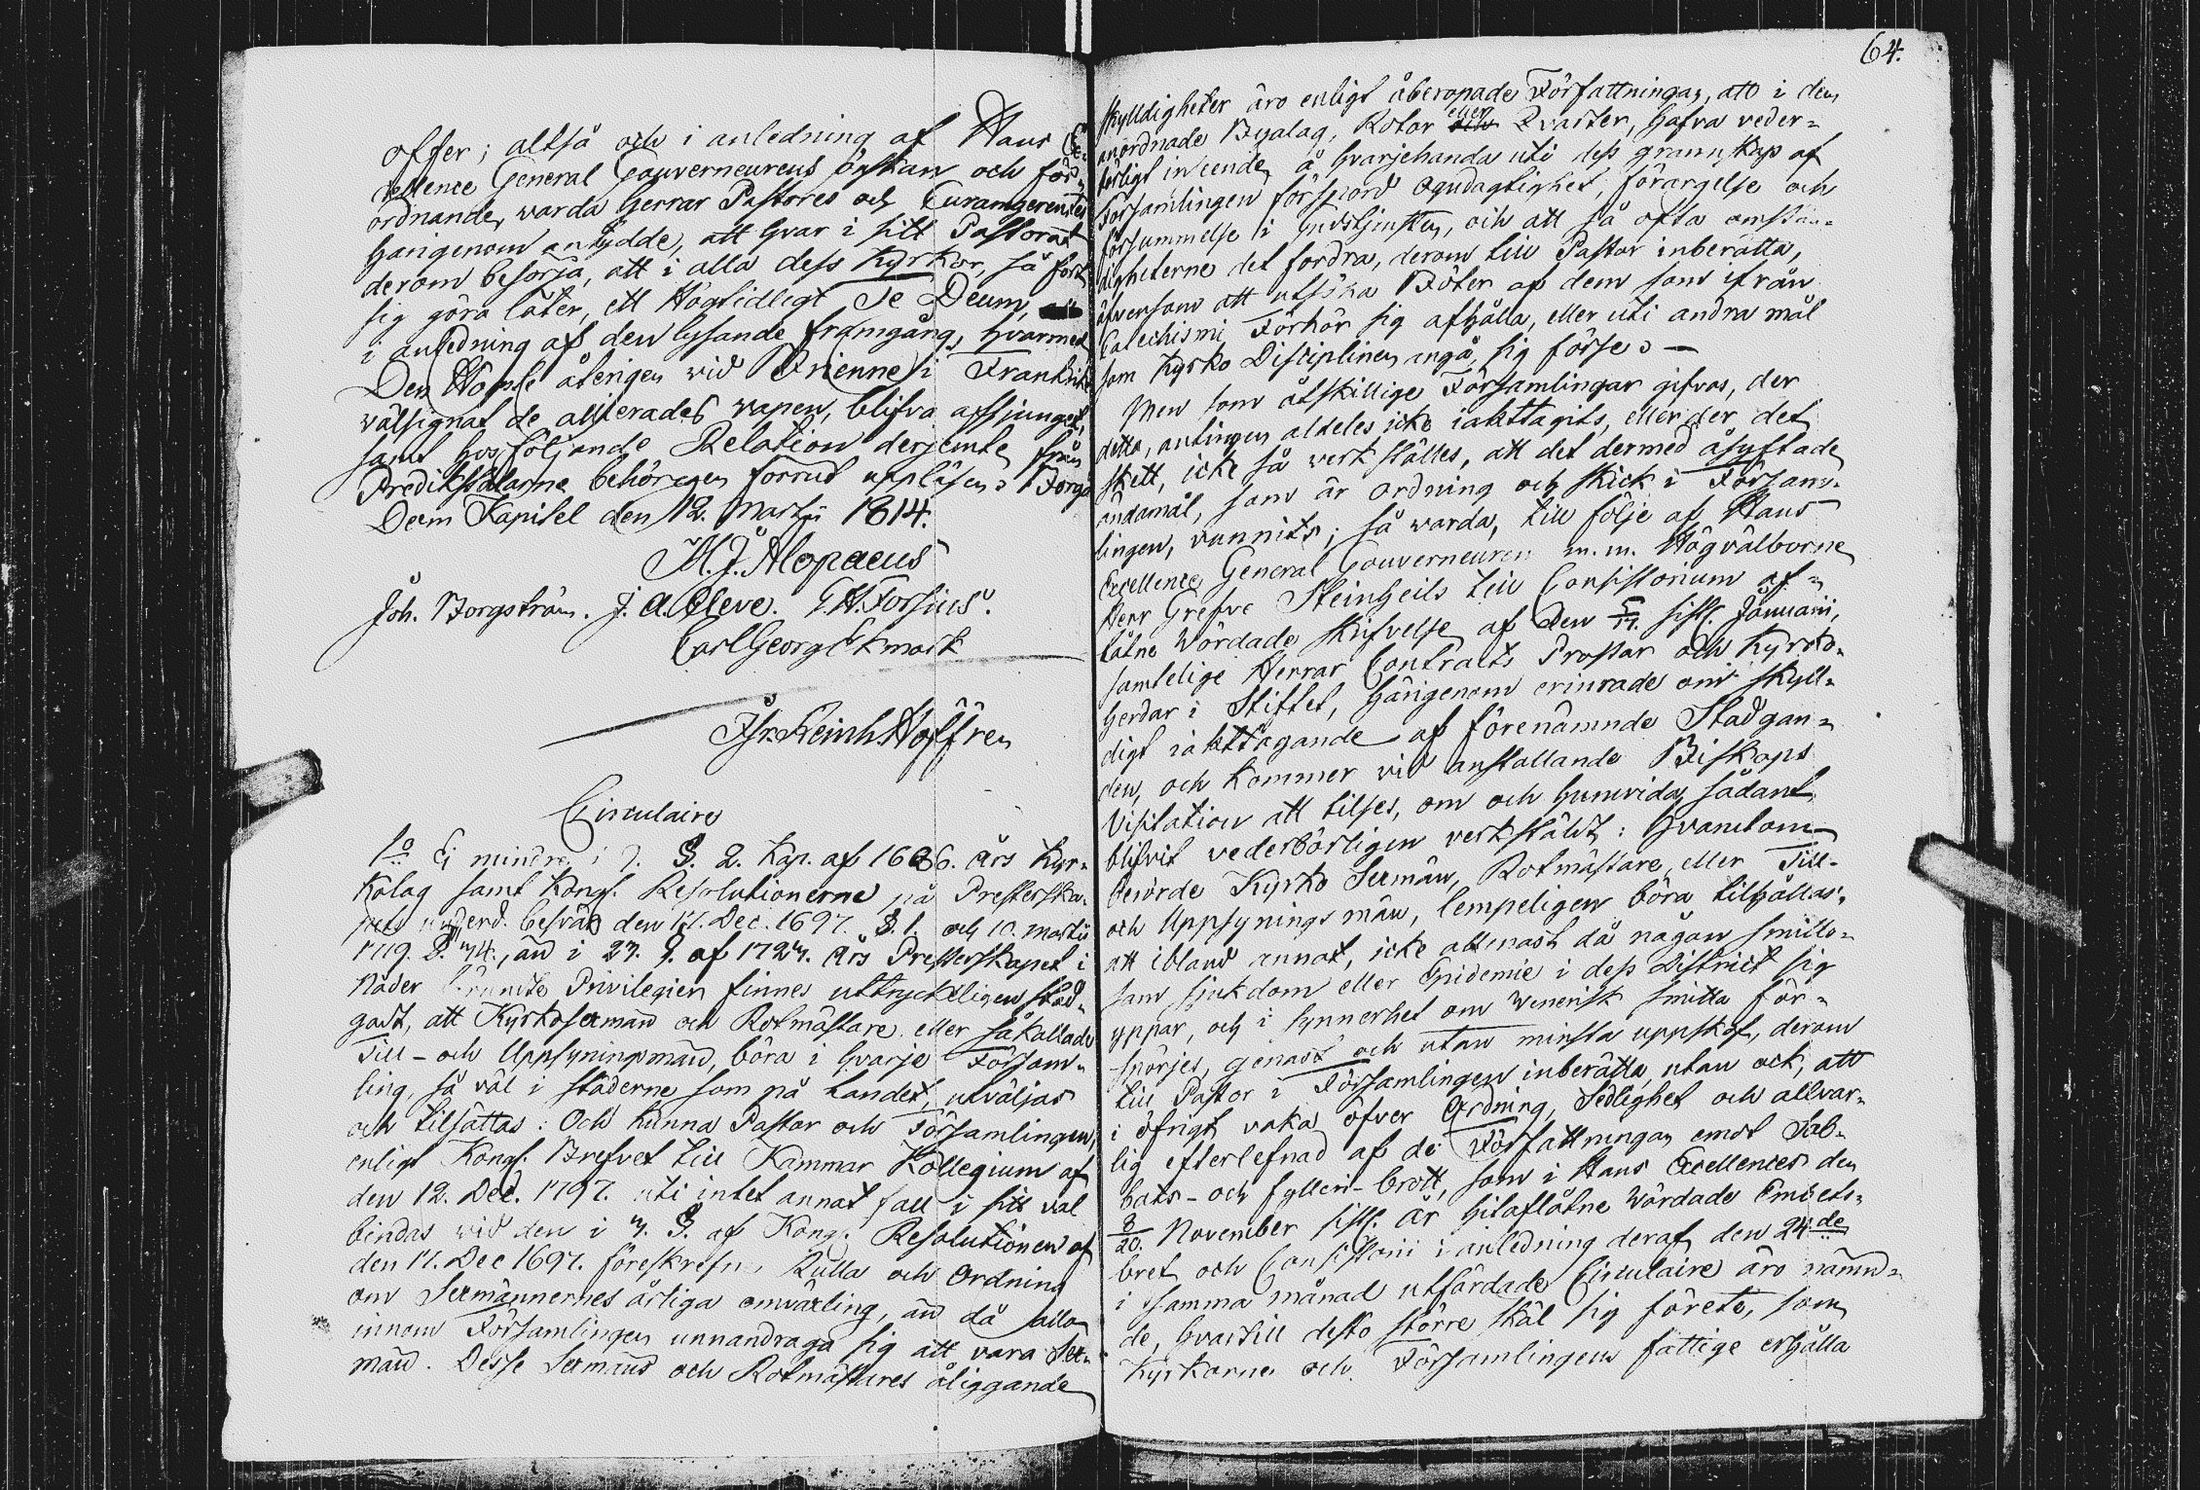 offer; altså och i anledning af Hans Ex-
cellence General Gouverneureus önskan och för-
ordnande, warda Herrar Pastores och Curamgerentes
härigenom antydde, att hvar i sitt Pastorat
derom besörja, att i alla dess Kyrkor, så fort
sig göra låter, ett Högtidligt Te Deum,
i anledning af den lysande framgång, hvarmed
Den Högste återigen wid Brienne i Frankrike
wälsignat de allierades wapen, blifva afsjunget,
samt hosföljande Relation derjemte från
Predikstolarne behörigen förrut uppläsen. Borgå
Dom Kapitel den 12. Martii 1814.
M. J. Alopaeus
Joh. Borgström. J. A. Cleve. G. H. Forsius.
Carl Georg Ekmark
Fr. Reinh. Hoffren
Circulaire
1o Ej mindre i 7. §. 2. Kap. af 1686. Års Kyr-
kolag samt Kongl. Resolutionerne på Presterska-
pets underd. besvär den 11. Dec. 1697. §. 1. och 10. Martii
1719. §. 74., än i 23. §. af 1723. Års Presterskapet i
Nåder Privilegier finnes uttryckeligen stad-
gadt, att Kyrkosexmän och Rotmästare eller såkallade
Till- och Uppsyningsmän, böra i hvarje Försam-
ling, så väl i städerne som på Landet, utväljas
och tilsättas: Och kunna Pastor och Församlingen,
enligt Kongl. Brefvet till Kammar Kollegium af
den 12. Dec. 1797. uti intet annat fall i sitt val
bindas wid den i 3. §. af Kongl. Resolutionen af
den 11. Dec 1697. föreskrefne Rulla och Ordning
om Sexmännernes årliga omväxling, än då alla
innom Församlingen unnandraga sig att vara Sex-
män. Desse Sexmäns och Rotmästares åliggande
64.
skylldigheter äro enligt åberopade Författningar, att i den
anordnade Byalag, Rotar eller Qvarter, hafva veder-
börligt inseende å hvarjehanda uti dess grannskap af
Församlingen förspord Ogudagtighet, förargelse och
försummelse i Gudstjensten, och att så ofta omstän-
digheterne det fordra, derom till Pastor inberätta,
äfvensom att utsöka Böter af dem som ifrån
Catechismi Förhör sig afhålla, eller uti andra mål
som Kyrko Disciplinen angå, sig förse. —
Men som åtskillige Församlingar gifvas, der
detta, antingen aldeles icke iakttagits, eller der det
skett, icke så werkställes, att det dermed åsyftade
ändamål, som är ordning och skick i Försam-
lingen, vunnits; så warda, till följe af Hans
Excellence General Gouverneuren m.m. Högvälborne
Herr Grefve Steinheils till Consistorium af-
låtne Wördade skrifvelse af den 5/17. sistl. Januarii,
samtelige Herrar Contracts Prostar och Kyrko-
herdar i Stiftet, härigenom erinrade om skyll-
digt iakttagande af förenämnde Stadgan-
den, och kommer vid anstallande Biskops
Visitation att tilses, om och huruvida sådant
blifvit vederbörligen verkställdt: hvarutom
berörde Kyrko Sexmän, Rotmästare, eller Till-
och Uppsynings män, lempeligen böra tilhållas,
att ibland annat, icke allenast då någon smitto-
sam sjukdom eller Epidemie i dess District sig
yppar, och i synnerhet om Wenerisk smitta för-
spörjes, genast och utan minsta uppskof, derom
till Pastor i Församlingen inberätta, utan ock, att
i öfrigt vaka öfver Ordning, Sedlighet och allvar-
lig efterlefnad af de Författningar emot Sab-
bats- och fylleri-brott, som i Hans Excellences den
8/20. November sistl. år hitaflåtne Wördade Embets-
bref och Consistorii i anledning deraf den 24.de
i samma månad utfärdade Circulaire äro nämn-
de, hvartill desto större skäl sig förete, som
Kyrkorne och Församlingens fattige erhålla